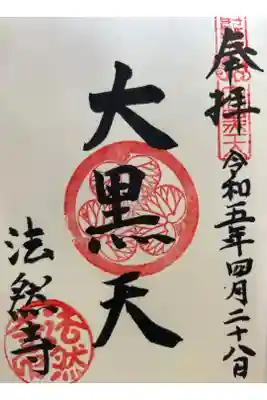 奉拝
令和五年四月二十八日
大黒天
法然寺
法然